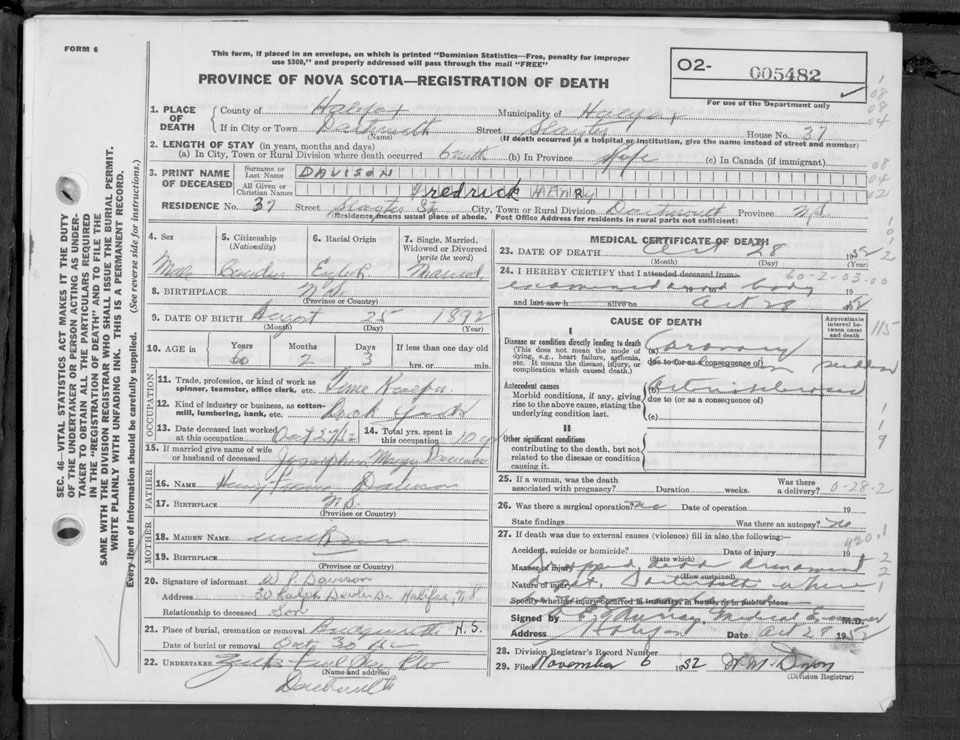 FORM 6
This form, if placed in an envelope, on which is printed "Dominion Statistics—Free, penalty for improper
use $300," and properly addressed will pass through the mail "FREE"
PROVINCE OF NOVA SCOTIA—REGISTRATION OF DEATH
O2- 005482
For use of the Department only
1. PLACE OF DEATH
County of Halifax Municipality of Halifax
If in City or Town Dartmouth Street Slayter House No. 37
(Name) (If death occurred in a hospital or institution, give the name instead of street and number)
2. LENGTH OF STAY (in years, months and days)
(a) In City, Town or Rural Division where death occurred 6 mth (b) In Province Life (c) In Canada (if immigrant)
3. PRINT NAME OF DECEASED
Surname or Last Name DAVISON
All Given or Christian Names Fredrick HENRY
RESIDENCE No. 37 Street Slayter St. City, Town or Rural Division Dartmouth Province N.S.
(Residence means usual place of abode. Post Office Address for residents in rural parts not sufficient)
SEC. 46—VITAL STATISTICS ACT MAKES IT THE DUTY
OF THE UNDERTAKER OR PERSON ACTING AS UNDER-
TAKER TO OBTAIN ALL THE PARTICULARS REQUIRED
IN THE "REGISTRATION OF DEATH" AND TO FILE THE
SAME WITH THE DIVISION REGISTRAR WHO SHALL ISSUE THE BURIAL PERMIT.
WRITE PLAINLY WITH UNFADING INK. THIS IS A PERMANENT RECORD.
Every item of information should be carefully supplied. (See reverse side for instructions.)
4. Sex 5. Citizenship (Nationality) 6. Racial Origin 7. Single, Married, Widowed or Divorced (write the word)
Male English Married
8. BIRTHPLACE N.S.
(Province or Country)
9. DATE OF BIRTH August 25 1892
(Month) (Day) (Year)
10. AGE in Years Months Days If less than one day old
60 2 3 hrs. or min.
OCCUPATION
11. Trade, profession, or kind of work as
spinner, teamster, office clerk, etc. Time Keeper
12. Kind of industry or business, as cotton-
mill, lumbering, bank, etc. Dock Yard
13. Date deceased last worked
at this occupation Oct /52
14. Total yrs. spent in
this occupation 10 y
15. If married give name of wife
or husband of deceased Josephine Davison
FATHER
16. NAME Henry Davison
17. BIRTHPLACE N.S.
(Province or Country)
MOTHER
18. MAIDEN NAME unknown
19. BIRTHPLACE
(Province or Country)
20. Signature of informant Davison
Address 30 Ralph Dr. Halifax, N.S
Relationship to deceased Son
21. Place of burial, cremation or removal N.S.
Date of burial or removal Oct 30/52
22. UNDERTAKER
(Name and address)
Dartmouth
MEDICAL CERTIFICATE OF DEATH
23. DATE OF DEATH Oct 28 1952
(Month) (Day) (Year)
24. I HEREBY CERTIFY that I attended deceased from
examined dead body
19 to
and last saw h alive on Oct 28 19
60-2-03-00
CAUSE OF DEATH
Approximate interval between onset and death
I
Disease or condition directly leading to death
(This does not mean the mode of
dying, e.g., heart failure, asthenia,
etc. It means the disease, injury, or
complication which caused death.)
(a) Coronary
due to (or as a consequence of) sudden
Antecedent causes
Morbid conditions, if any, giving
rise to the above cause, stating the
underlying condition last.
(b)
due to (or as a consequence of)
(c)
II
Other significant conditions
contributing to the death, but not
related to the disease or condition
causing it.
25. If a woman, was the death
associated with pregnancy? Duration weeks. Was there a delivery? 0-28-2
26. Was there a surgical operation? no Date of operation 19
State findings Was there an autopsy? no
27. If death was due to external causes (violence) fill in also the following:—
Accident, suicide or homicide? Date of injury 19
(State which)
Manner of injury dropped dead
(How sustained)
Nature of injury Dartmouth where
Specify whether injury occurred in industry, in home, or in public place
Signed by Murray Medical Examiner M.D.
Address Halifax Date Oct 29 1952
28. Division Registrar's Record Number
29. Filed November 6 1952
(Division Registrar)